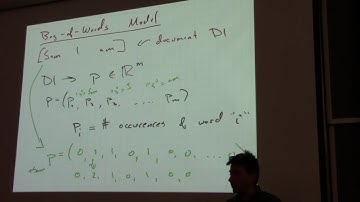 Bag-of-Words Model
[Sam I am] ← document D1
D1 → P ∈ ℝ^m
"1"=Sam "2"=I "3"=am
P = (P₁, P₂, P₃, .... Pₘ)
Pᵢ = # occurences of word "i"
P = (0, 1, 1, 0, 1, 0, 0, ....
0, 2, 1, 0, 1, 0, 0